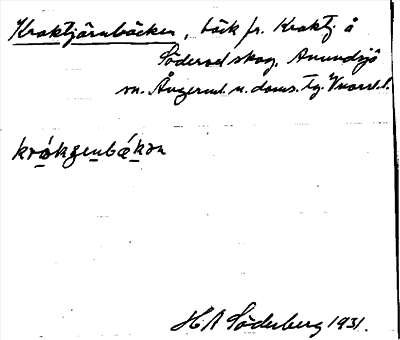 Kroktjärnbäcken, bäck fr. Kroktj. å
Södersel skog. Anundsjö
sn. Ångerml. n. doms. tg. Vnorrl. l.
krókʒenbǽkən
H A Söderberg 1931.